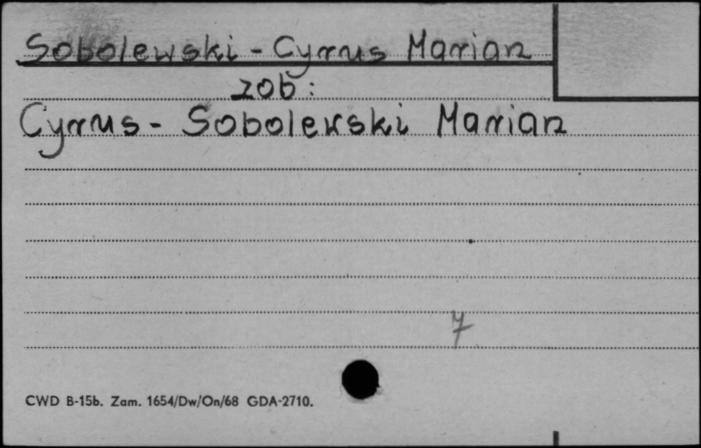 Sobolewski - Cyrrus Marian
zob:
Cyrrus - Sobolewski Marian
7
CWD B-15b. Zam. 1654/Dw/On/68 GDA-2710.